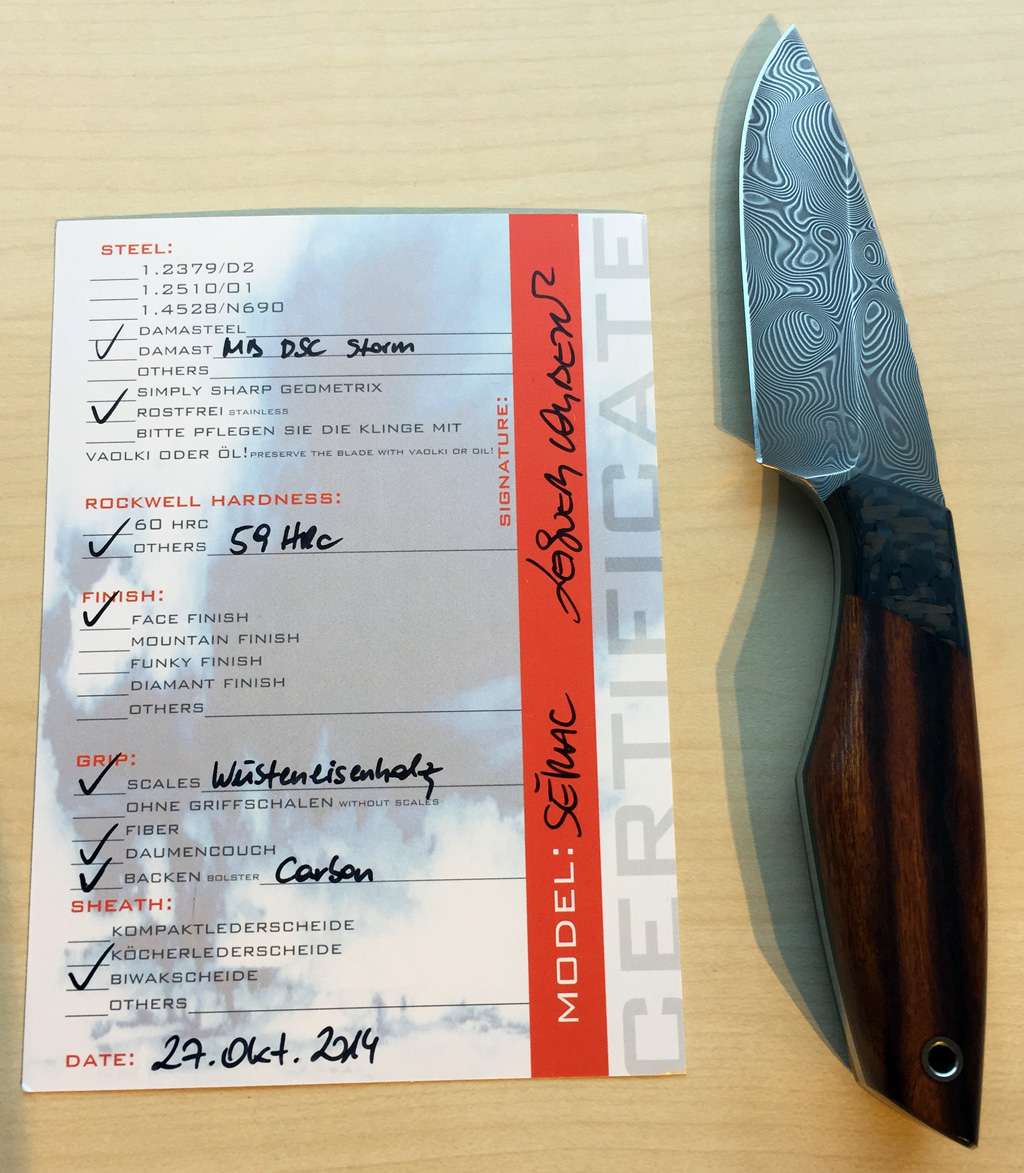 STEEL:
1.2379/D2
1.2510/01
1.4528/N690
DAMASTEEL
DAMAST MB DSC Storm
OTHERS
SIMPLY SHARP GEOMETRIX
ROSTFREI STAINLESS
BITTE PFLEGEN SIE DIE KLINGE MIT
VAOLKI ODER ÖL! PRESERVE THE BLADE WITH VAOLKI OR OIL!
ROCKWELL HARDNESS:
60 HRC
OTHERS 59 HRc
FINISH:
FACE FINISH
MOUNTAIN FINISH
FUNKY FINISH
DIAMANT FINISH
OTHERS
GRIP:
SCALES Wüsteneisenholz
OHNE GRIFFSCHALEN WITHOUT SCALES
FIBER
DAUMENCOUCH
BACKEN BOLSTER Carbon
SHEATH:
KOMPAKTLEDERSCHEIDE
KÖCHERLEDERSCHEIDE
BIWAKSCHEIDE
OTHERS
DATE: 27. Okt. 2014
SIGNATURE:
MODEL: SÉRAC
CERTIFICATE